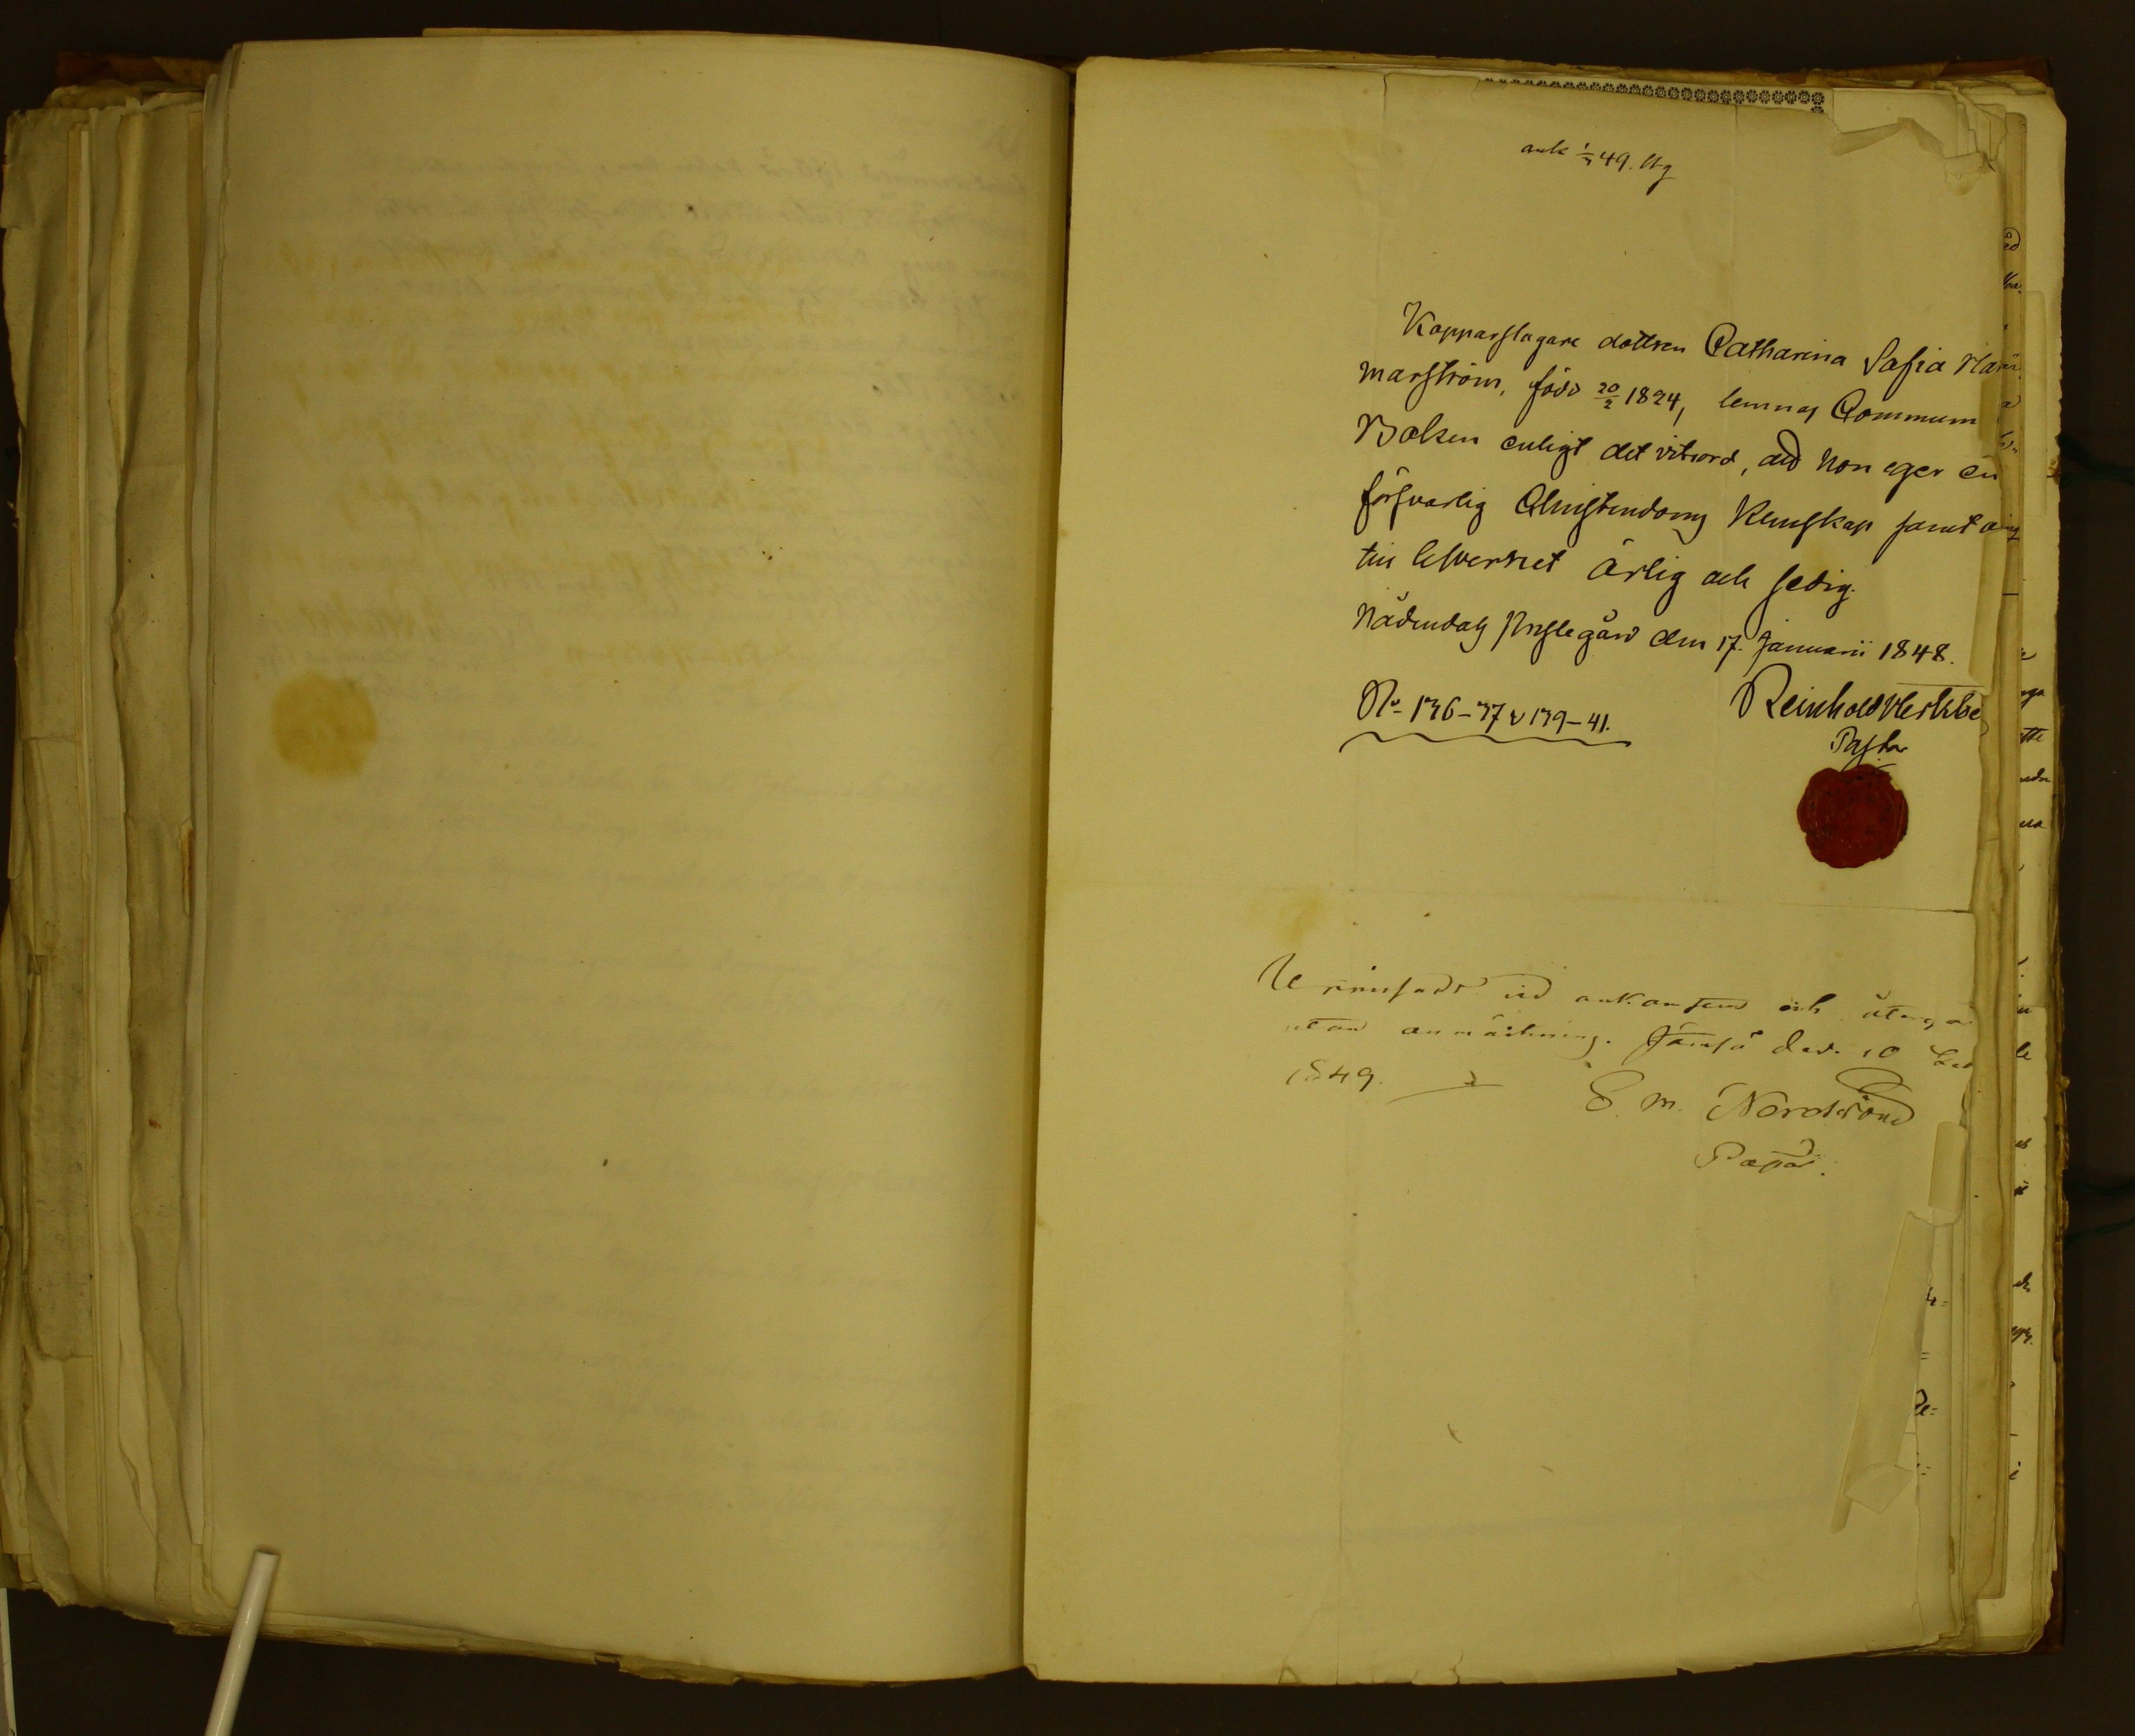 ank 1/3 49.
Kopparslagare dottren Catharina Sofia Ham̄
marström, född 20/2 1824, lemnas Commun
Boken enligt det vitsord, att hon eger en
försvarlig Christendoms Kunskap samt är
till lefvernet ärlig och sedig.
Nådendals Prestegård den 17. Januarii 1848.
No 136-37 & 139-41.
Reinhold Herkbe
Past.
vid ankomsten och återgå
utan anmärkning. Jämsä den 10
1849.
E. M. Nordströnd